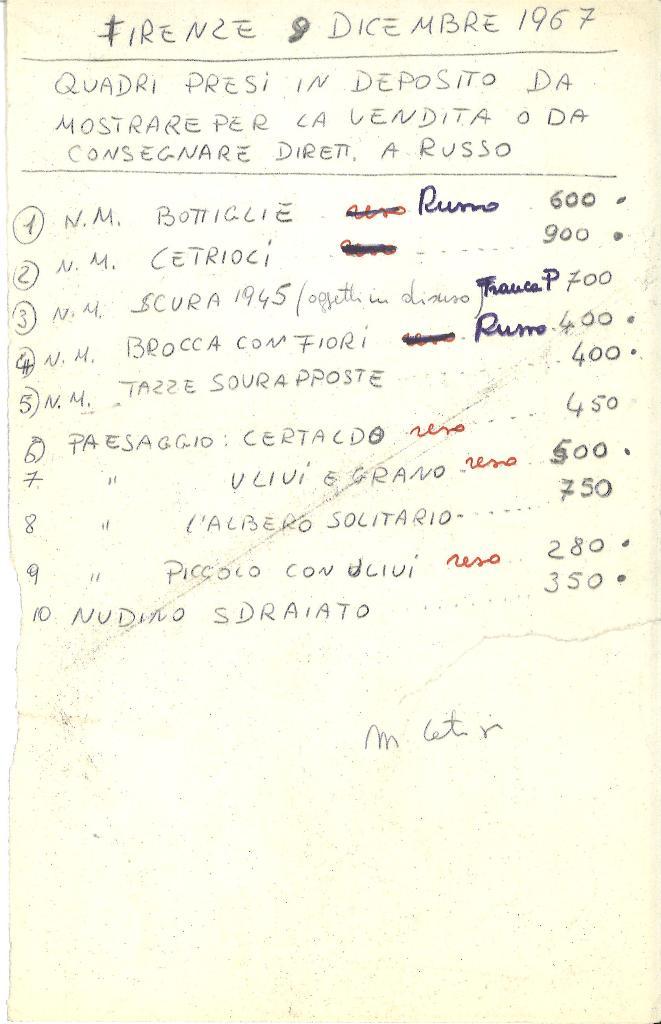 FIRENZE 9 DICEMBRE 1967
QUADRI PRESI IN DEPOSITO DA
MOSTRARE PER LA VENDITA O DA
CONSEGNARE DIRETT. A RUSSO
1 N.M. BOTTIGLIE reso Russo 600 •
2 N.M. CETRIOLI reso 900 •
3 N.M. SCURA 1945 (oggetti in disuso) Franca P 700
4 N.M. BROCCA CON FIORI reso Russo 400 •
5) N.M. TAZZE SOVRAPPOSTE 400 •
6) PAESAGGIO: CERTALDO reso 450
7 " ULIVI E GRANO reso 500 •
8 " L'ALBERO SOLITARIO 750
9 " PICCOLO CON ULIVI reso 280 •
10 NUDINO SDRAIATO 350 •
M